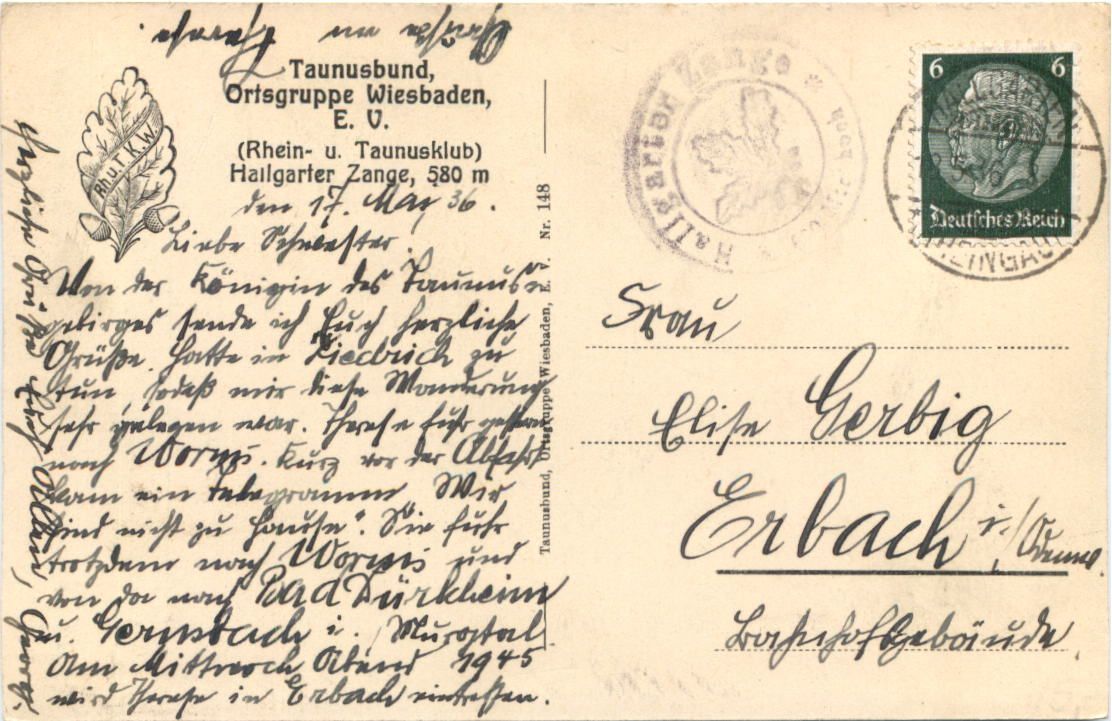 Taunusbund,
Ortsgruppe Wiesbaden,
E. V.
(Rhein- u. Taunusklub)
Hallgarter Zange, 580 m
Rh. u. T. K. W.
den 17. May 36.
Liebe Schwester.
Von der Königin des Taunus-
gebirges sende ich Euch herzliche
Grüße. Hatte in Kiedrich zu
tun, sodaß mir diese Wanderung
sehr gelegen war. Therese fuhr gestern
nach Worms. Kurz vor der Abfahrt
kam ein Telegramm „Wir
sind nicht zu Hause". Sie fuhr
trotzdem nach Worms und
von da nach Bad Dürkheim
u. Gernsbach i. Murgtal
Am Mittwoch Abend 1945
wird Therese in Erbach eintreffen.
Herzliche Grüße Euch Allen, Georg.
Taunusbund, Ortsgruppe Wiesbaden, E. V. Nr. 148
Hallgarter Zange
6 6
Deutsches Reich
RHEINGAU
Frau
Elise Gerbig
Erbach i./Odenw.
Bahnhofgebäude